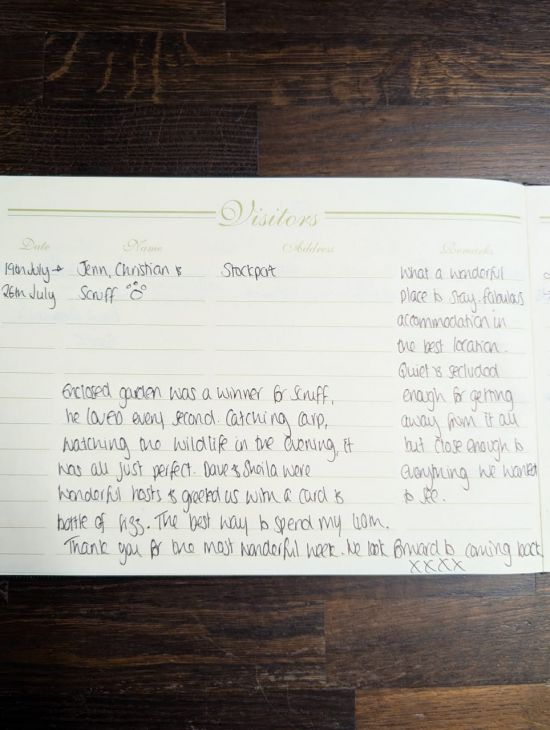 Visitors
Date Name Address Remarks
19th July → Jenn, Christian & Stockport
26th July Scruff
What a wonderful
place to stay. Fabulous
accommodation in
the best location.
Quiet & secluded
enough for getting
away from it all
but close enough to
everything we wanted
to see.
Enclosed garden was a winner for Scruff,
he loved every second. Catching carp,
watching the wildlife in the evening, it
was all just perfect. Dave & Sheila were
wonderful hosts & greeted us with a card &
bottle of fizz. The best way to spend my 40th.
Thank you for the most wonderful week. We look forward to coming back
xxxx